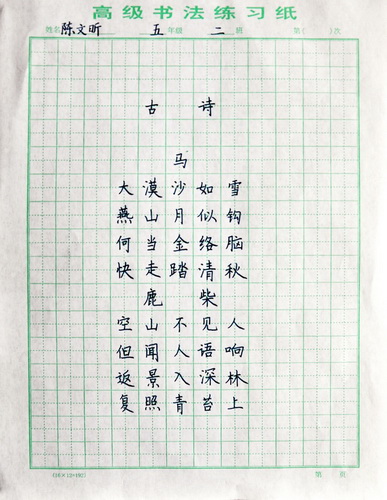 高级书法练习纸
姓名 陈文昕 五 年级 二 班 第( )次
古诗
马
大漠沙如雪
燕山月似钩
何当金络脑
快走踏清秋
鹿柴
空山不见人
但闻人语响
返景入深林
复照青苔上
(16×12=192) 第 页